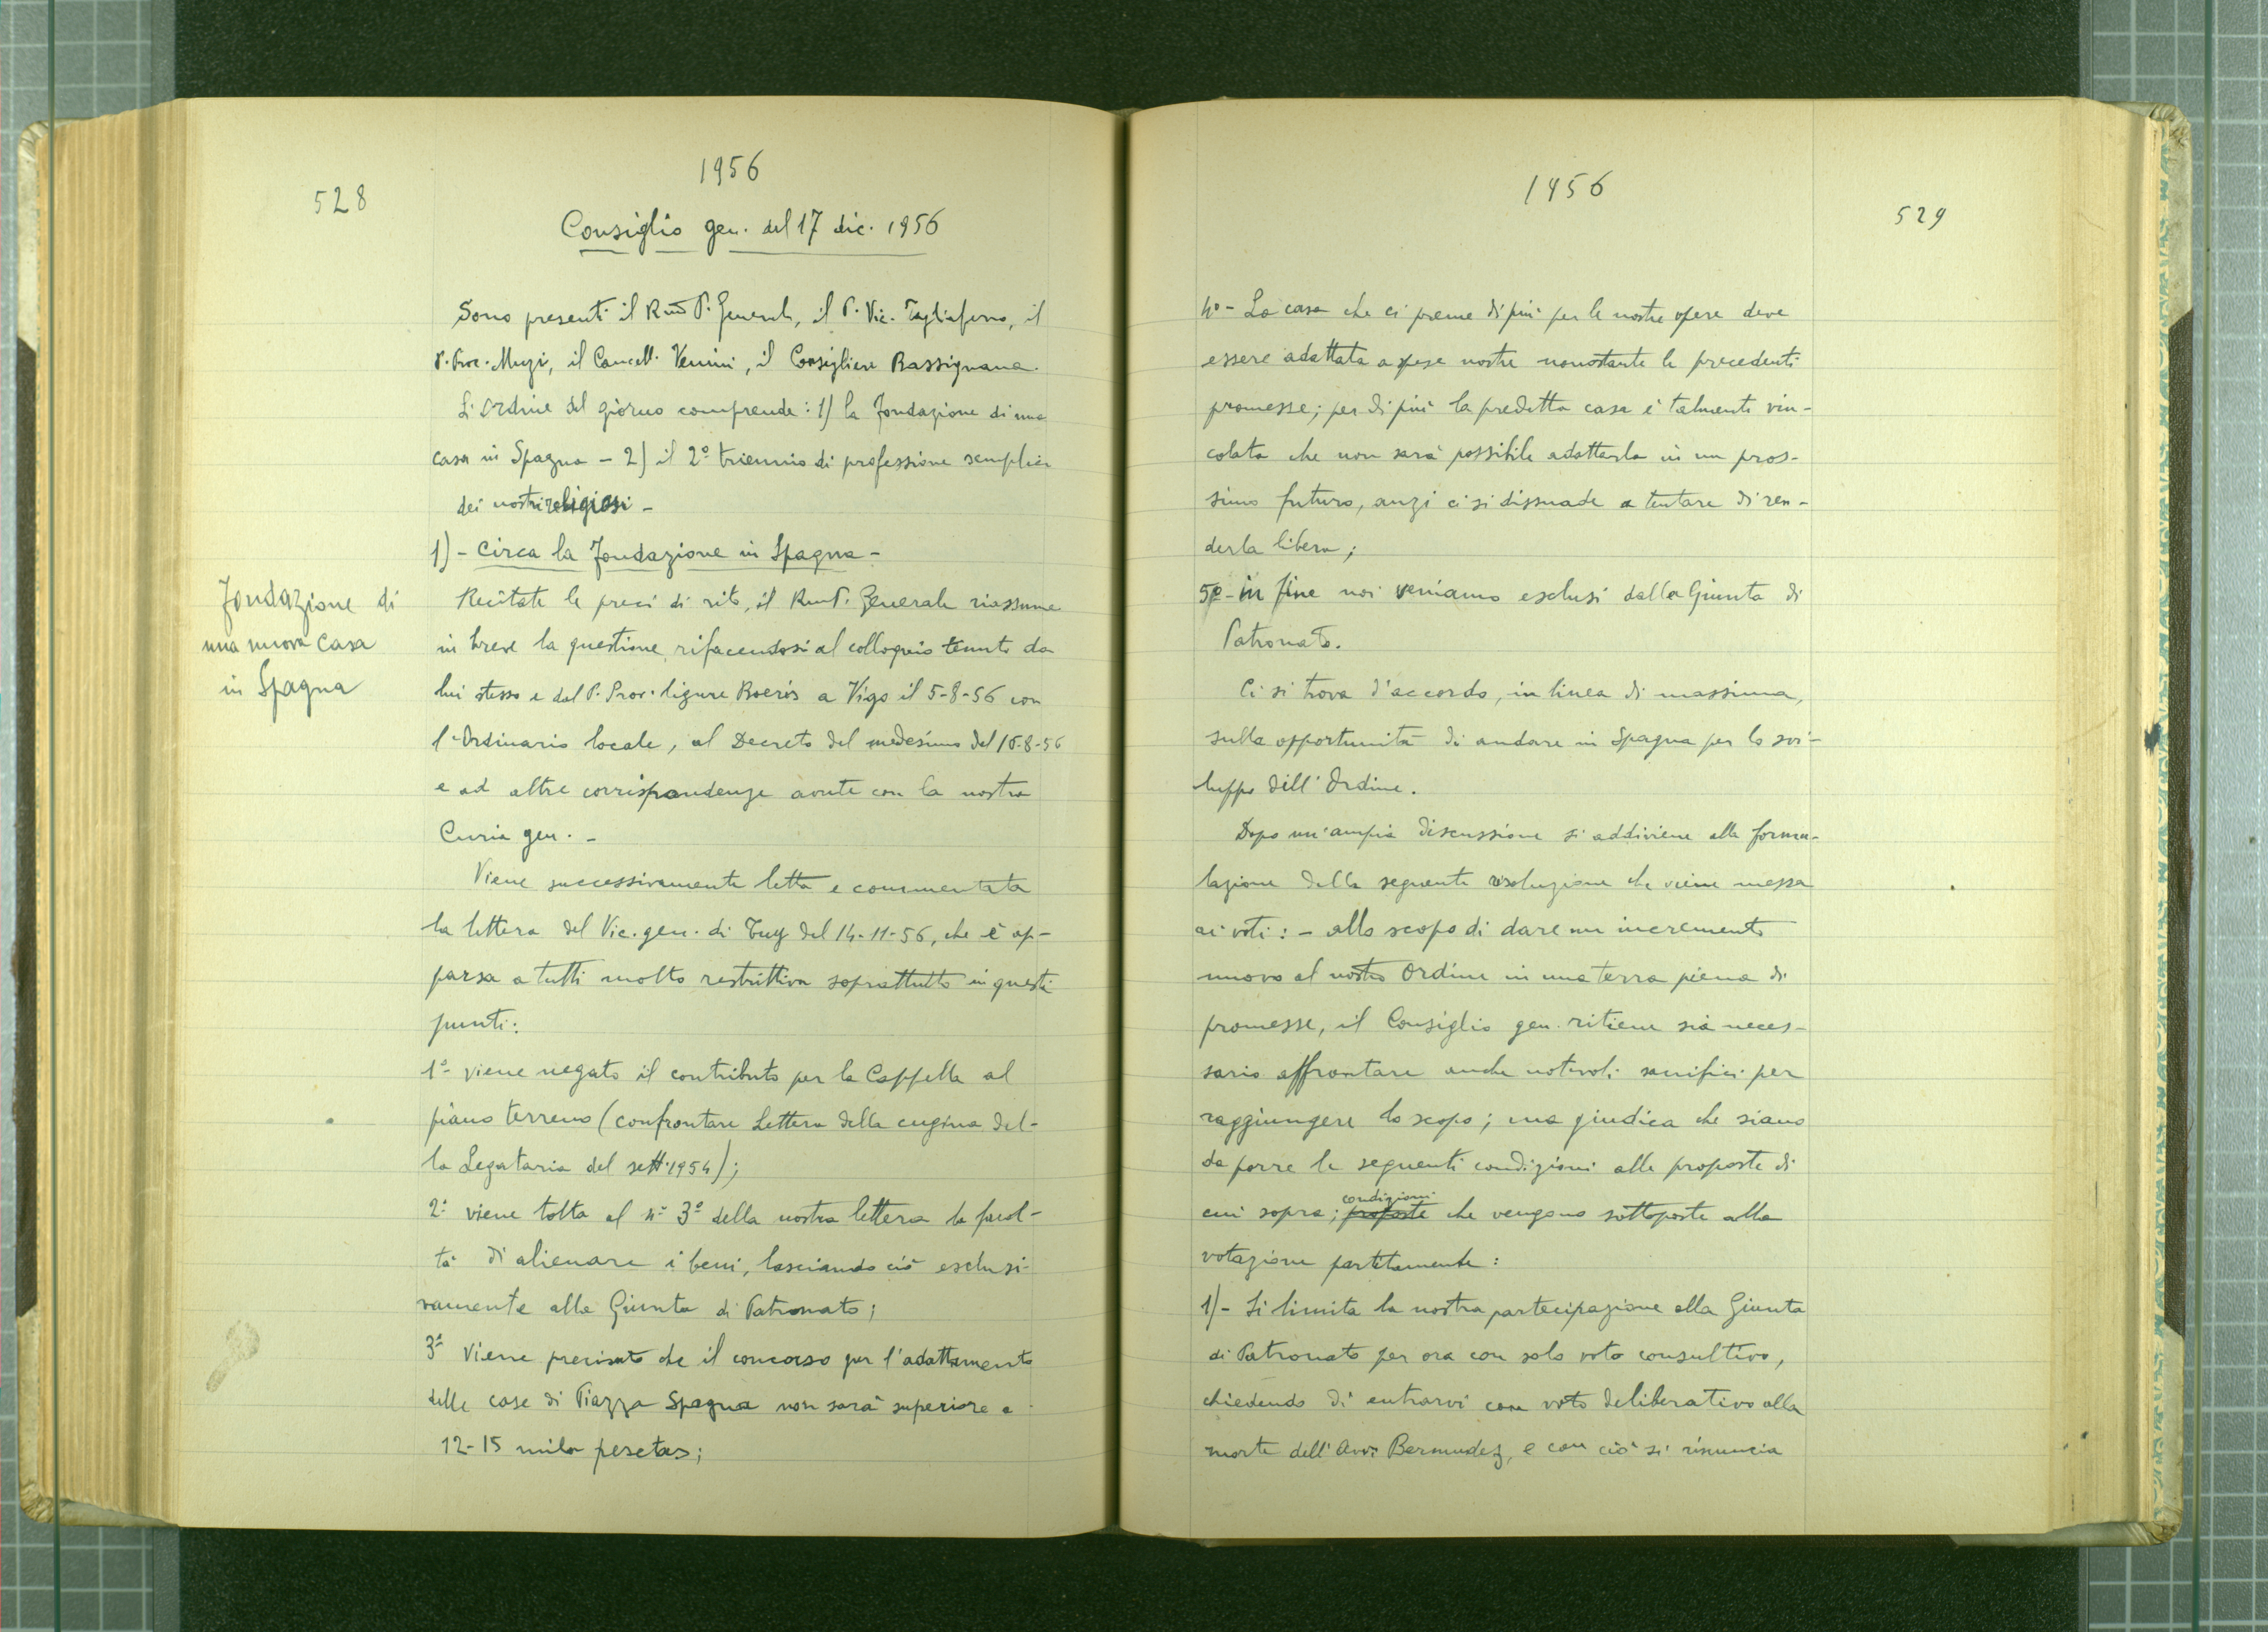 1956
528
Consiglio gen. del 17 dic. 1956
Sono presenti il Rmo P. Generale, il P. Vic. Tagliaferro, il
P. Proc. Muzi, il Cancell. Venini, il Consigliere Bassignana.
L'Ordine del giorno comprende: 1) la fondazione di una
casa in Spagna - 2) il 2° triennio di professione semplice
dei nostri religiosi -
1) - Circa la fondazione in Spagna -
Fondazione di
una nuova casa
in Spagna
Recitate le preci di rito, il Rm P. Generale riassume
in breve la questione rifacendosi al colloquio tenuto da
lui stesso e dal P. Prov. ligure Boeris a Vigo il 5-8-56 con
l'Ordinario locale, al Decreto del medesimo del 16-8-56
e ad altre corrispondenze avute con la nostra
Curia gen. -
Viene successivamente letta e commentata
la lettera del Vic. gen. di Tuy del 14-11-56, che è ap-
parsa a tutti molto restrittiva soprattutto in questi
punti:
1° viene negato il contributo per la Cappella al
piano terreno (confrontare Lettera della cugina del-
la Legataria del sett. 1954);
2° viene tolta al n° 3° della nostra lettera la facol-
tà di alienare i beni, lasciando ciò esclusi-
vamente alla Giunta di Patronato;
3° Viene precisato che il concorso per l'adattamento
delle case di Piazza Spagna non sarà superiore a
12-15 mila pesetas;
1956
529
4° - La casa che ci preme di più per le nostre opere deve
essere adattata a spese nostre nonostante le precedenti
promesse; per di più la predetta casa è talmente vin-
colata che non sarà possibile adattarla in un pros-
simo futuro, anzi ci si dissuade a tentare di ren-
derla libera;
5° - in fine noi veniamo esclusi dalla Giunta di
Patronato.
Ci si trova d'accordo, in linea di massima,
sulla opportunità di andare in Spagna per lo svi-
luppo dell'Ordine.
Dopo un'ampia discussione si addiviene alla formu-
lazione della seguente risoluzione che viene messa
ai voti: - allo scopo di dare un incremento
nuovo al nostro Ordine in una terra piena di
promesse, il Consiglio gen. ritiene sia neces-
sario affrontare anche notevoli sacrifici per
raggiungere lo scopo; ma giudica che siano
da porre le seguenti condizioni alle proposte di
condizioni
cui sopra; proposte che vengono sottoposte alla
votazione partitamente:
1) - Si limita la nostra partecipazione alla Giunta
di Patronato per ora con solo voto consultivo,
chiedendo di entrarvi con voto deliberativo alla
morte dell'Avv. Bermudez, e con ciò si rinuncia